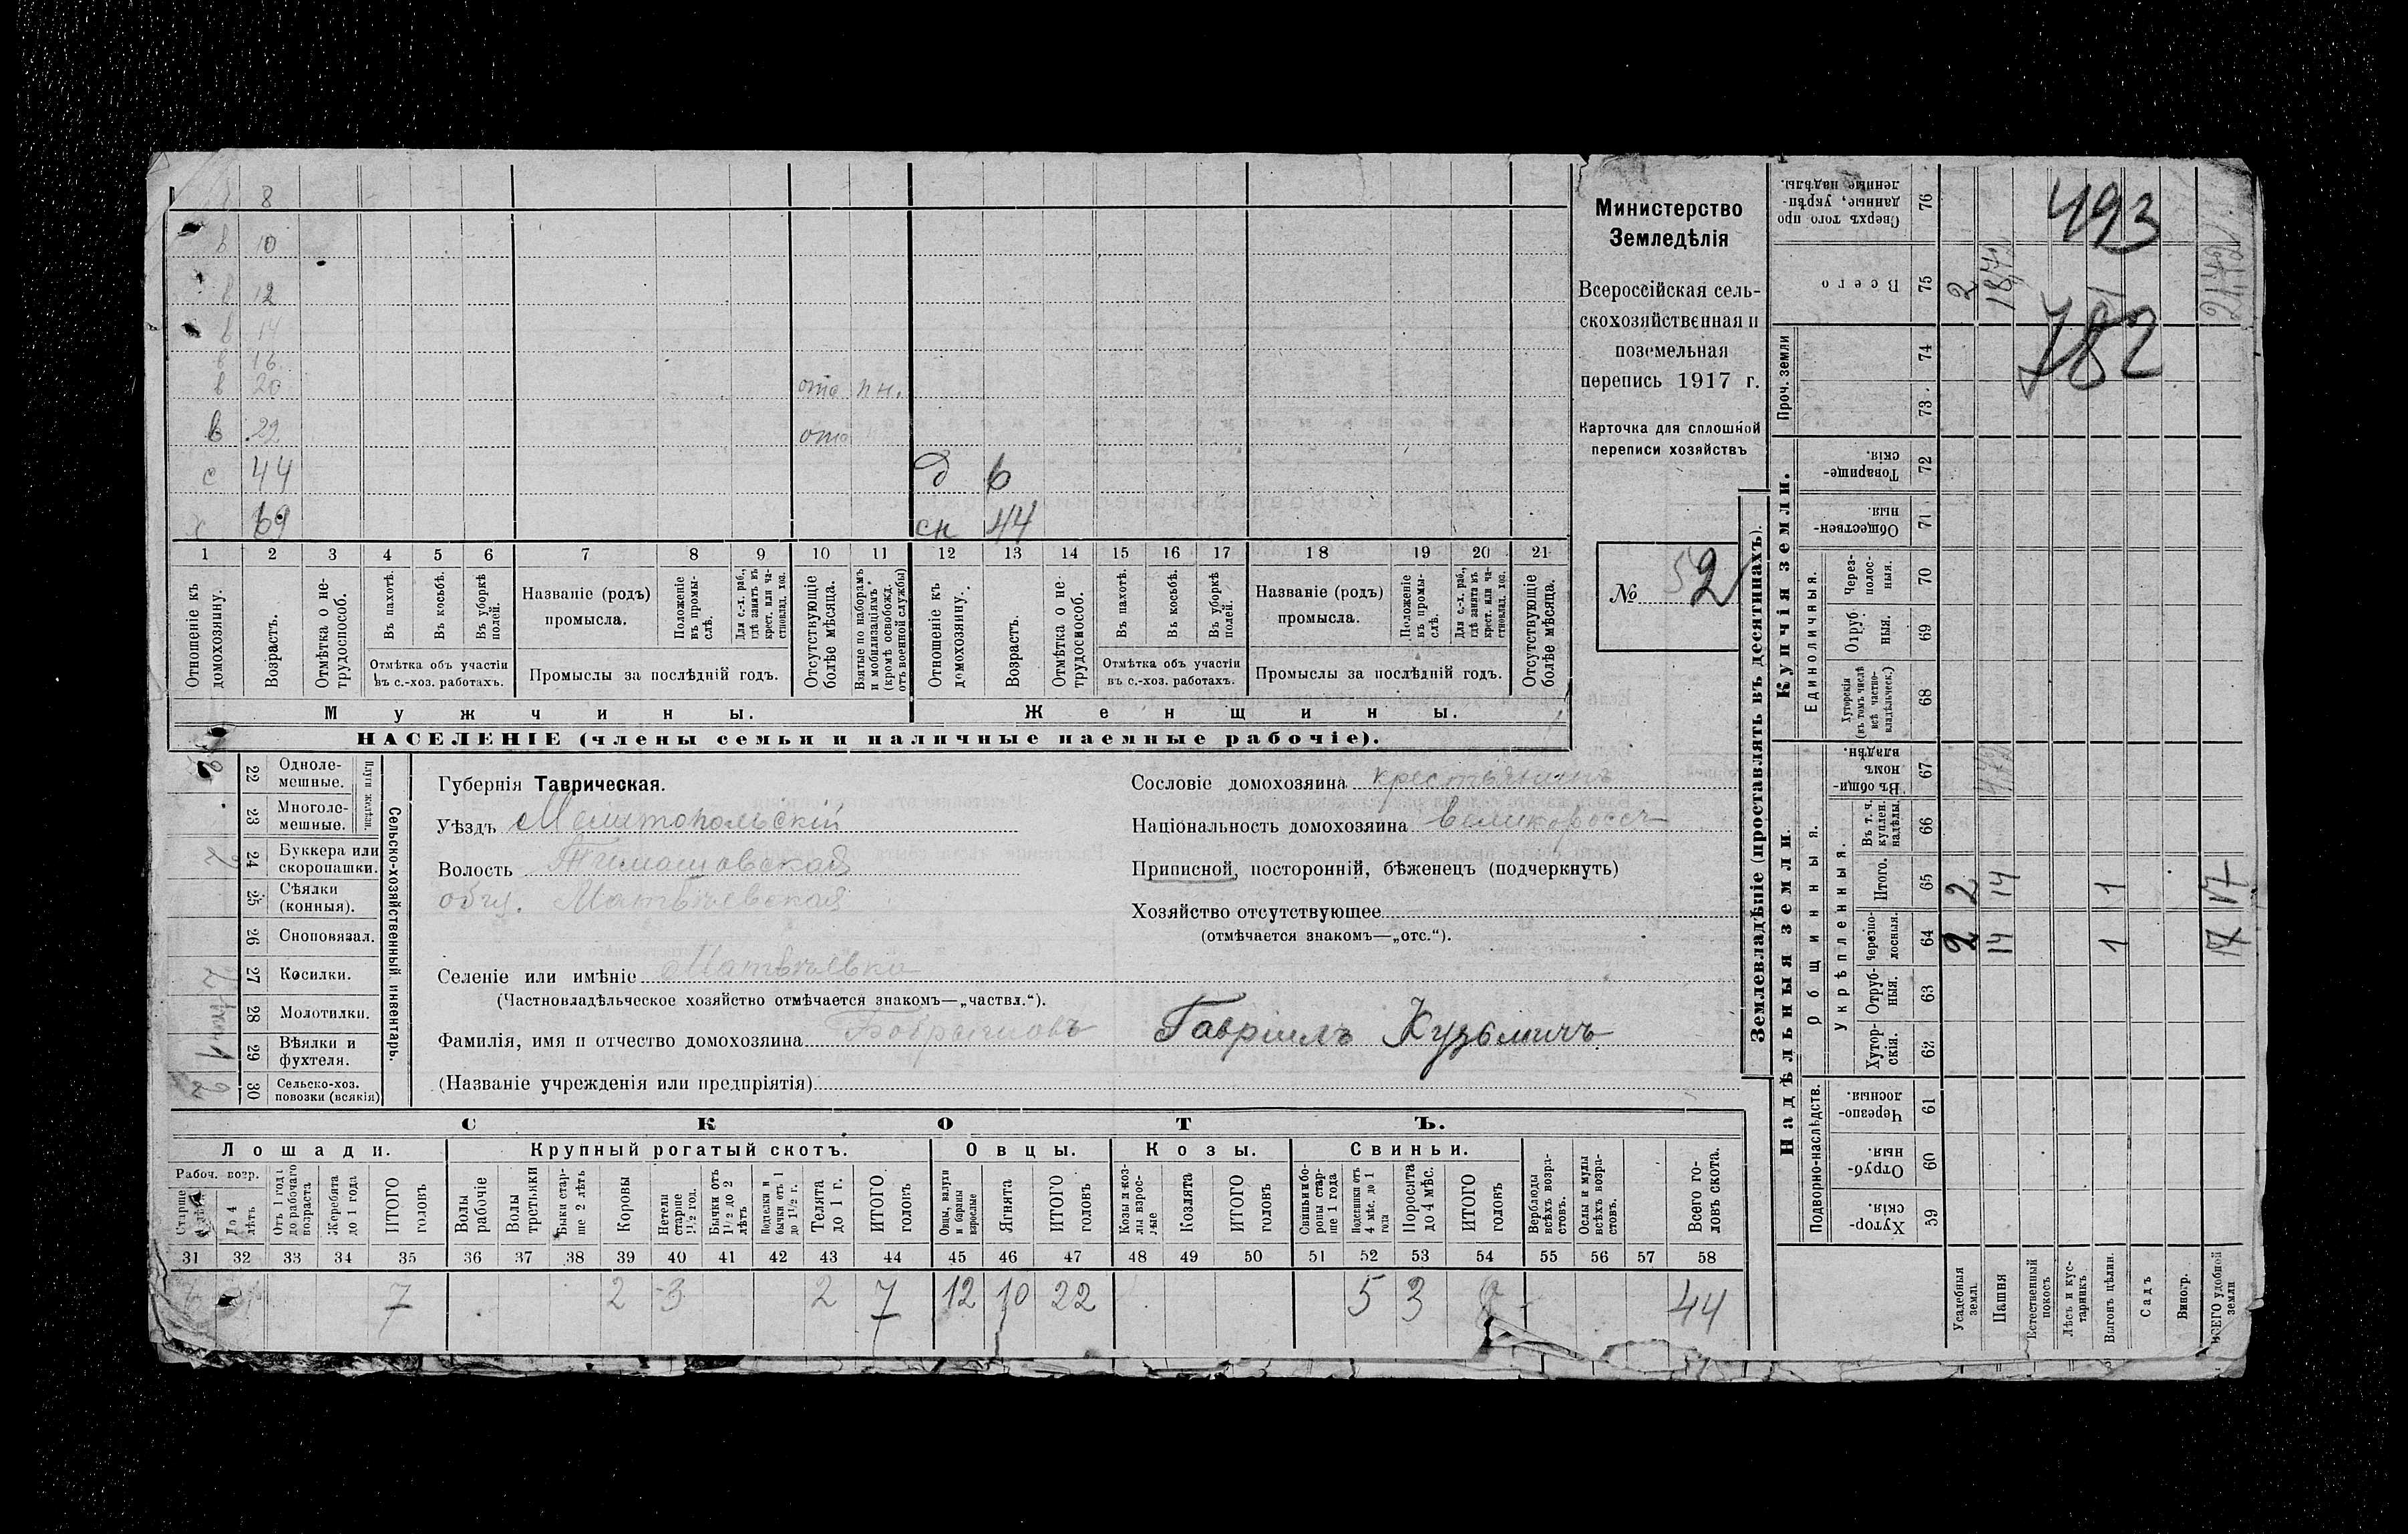 8
в 10
в 12
в 14
в 16
в 20 отс пн.
в 22 отс
с 44 д 6
х 69 сн 44
1 2 3 4 5 6 7 8 9 10 11 12 13 14 15 16 17 18 19 20 21
Отношеніе къ домохозяину.
Возрастъ.
Отмѣтка о нетрудоспособ.
Въ пахотѣ.
Въ косьбѣ.
Въ уборкѣ полей.
Отмѣтка объ участіи въ с.-хоз. работахъ.
Названіе (родъ) промысла.
Положеніе въ промыслѣ.
Для с.-х. раб., гдѣ занятъ въ крест. или частновлад. хоз.
Промыслы за послѣдній годъ.
Отсутствующіе болѣе мѣсяца.
Взятые по наборамъ и мобилизаціямъ (кромѣ освобожд. отъ военной службы)
Отношеніе къ домохозяину.
Возрастъ.
Отмѣтка о нетрудоспособ.
Въ пахотѣ.
Въ косьбѣ.
Въ уборкѣ полей.
Отмѣтка объ участіи въ с.-хоз. работахъ.
Названіе (родъ) промысла.
Положеніе въ промыслѣ.
Для с.-х. раб., гдѣ занята въ крест. или частновлад. хоз.
Промыслы за послѣдній годъ.
Отсутствующіе болѣе мѣсяца.
Мужчины. Женщины.
НАСЕЛЕНІЕ (члены семьи и наличные наемные рабочіе).
Министерство
Земледѣлія
Всероссійская сель-
скохозяйственная и
поземельная
перепись 1917 г.
Карточка для сплошной
переписи хозяйствъ
№ 52
Сельско-хозяйственный инвентарь.
Плуги желѣзн.
22 Однолемешные.
23 Многолемешные.
24 Буккера или скоропашки. 2
25 Сѣялки (конныя).
26 Сноповязал.
27 Косилки.
28 Молотилки.
29 Вѣялки и фухтеля. 1
30 Сельско-хоз. повозки (всякія) 2
Губернія Таврическая.
Уѣздъ Мелитопольскій
Волость Тимошовская
общ. Матвѣевская
Селеніе или имѣніе Матвѣевка
(Частновладѣльческое хозяйство отмѣчается знакомъ—„частвл.“).
Фамилія, имя и отчество домохозяина Бобрышовъ Гавріилъ Кузьмичъ
(Названіе учрежденія или предпріятія)
Сословіе домохозяина крестьянинъ
Національность домохозяина великороссъ
Приписной, посторонній, бѣженецъ (подчеркнуть)
Хозяйство отсутствующее
(отмѣчается знакомъ—„отс.“).
СКОТЪ.
Лошади. Крупный рогатый скотъ. Овцы. Козы. Свиньи.
Рабоч. возр.
Старше 4 лѣтъ
До 4 лѣтъ
Отъ 1 года до рабочаго возраста
Жеребята до 1 года
ИТОГО головъ
Волы рабочіе
Волы третьяки
Быки старше 2 лѣтъ
Коровы
Нетели старше 1½ год.
Бычки отъ 1½ до 2 лѣтъ
Подтелки и бычки отъ 1 до 1½ г.
Телята до 1 г.
ИТОГО головъ
Овцы, валухи и бараны взрослые
Ягнята
ИТОГО головъ
Козы и козлы взрослые
Козлята
ИТОГО головъ
Свиньи и боровы старше 1 года
Подсвинки отъ 4 мѣс. до 1 года
Поросята до 4 мѣс.
ИТОГО головъ
Верблюды всѣхъ возрастовъ.
Ослы и мулы всѣхъ возрастовъ.
Всего головъ скота.
31 32 33 34 35 36 37 38 39 40 41 42 43 44 45 46 47 48 49 50 51 52 53 54 55 56 57 58
7 2 3 2 7 12 10 22 5 3 8 44
Землевладѣніе (проставлять въ десятинахъ).
Купчія земли.
Надѣльныя земли.
Проч. земли
Единоличныя.
Общинныя.
Укрѣпленныя.
Подворно-наслѣдств.
76 Сверхъ того проданные, укрѣпленные надѣлы.
75 Всего 2 18,7
74
73
72 Товарищескія.
71 Общественныя.
70 Черезполосныя.
69 Отрубныя.
68 Хуторскія (въ томъ числѣ всѣ частновладѣльческ.)
67 Въ общинномъ владѣн.
66 Въ т. ч. куплен. надѣлы.
65 Итого. 2 14 1 17
64 Черезполосныя. 2 14 1 17
63 Отрубныя.
62 Хуторскія.
61 Черезполосныя.
60 Отрубныя.
59 Хуторскія.
Усадебныя земл.
Пашня
Естественный покосъ
Лѣсъ и кустарникъ.
Выгонъ цѣлин.
Садъ
Виногр.
ВСЕГО удобной земли
493
782